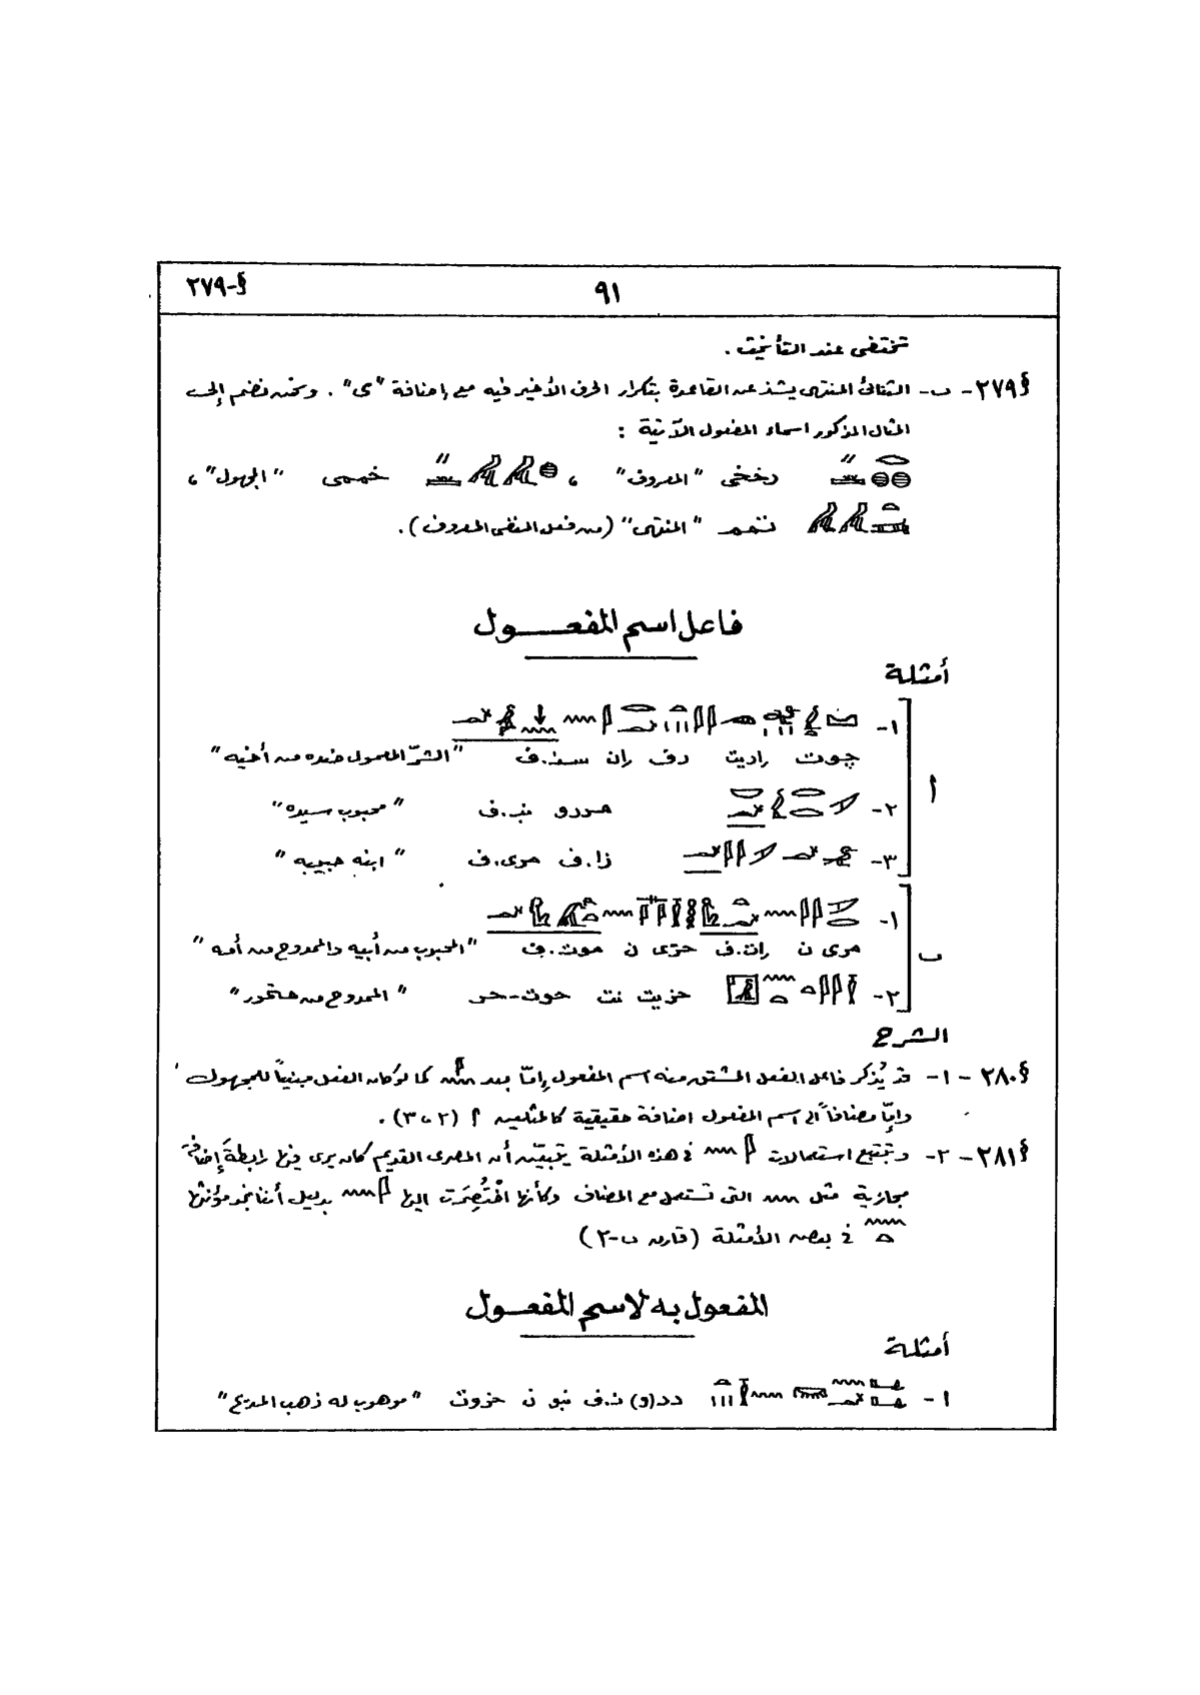 ٩١
§-٢٧٩
تختفى عند التأنيث .
§٢٧٩ - ب - الثنائى المنتهى يشذ عن القاعدة بتكرار الحرف الأخير فيه مع إضافة "ى" . ونحن نضم إلى
المثال المذكور اسماء المفعول الآتية :
رخخى "المعروف" ، خممى "المجهول" ،
نتمم "المنتهى" (من فعل المنفى المعروف) .
فاعل اسم المفعول
أمثلة
أ
١- چوت راديت رف ران سن.ف "الشرّ المعمول ضده من أخيه"
٢- مررو نب.ف "محبوب سيده"
٣- زا.ف مرى.ف "ابنه حبيبه"
ب
١- مرى ن ران.ف حزى ن موت.ف "المحبوب من أبيه والممدوح من أمه"
٢- حزيت نت حوت-حر "الممدوح من هتحور"
الشرح
§٢٨٠ - ١- قد يُذكر فاعل الفعل المشتق منه اسم المفعول إمّا بعد كما لو كان الفعل مبنياً للمجهول
وإمّا مضافاً الى اسم المفعول اضافة حقيقية كالمثلين أ (٢ ، ٣) .
§٢٨١ - ٢- وبتتبع استعمالات فى هذه الأمثلة يتبيّن أن المصرى القديم كان يرى فيها رابطة إضافة
مجازية مثل التى تستعمل مع المضاف وكأنها اخْتُصِرَت إليها بدليل أننا نجد مؤنثها
فى بعض الأمثلة (قارن ب-٢)
المفعول به لاسم المفعول
أمثلة
١- دد(و) ن.ف نبو ن حزوت "موهوب له ذهب المديح"